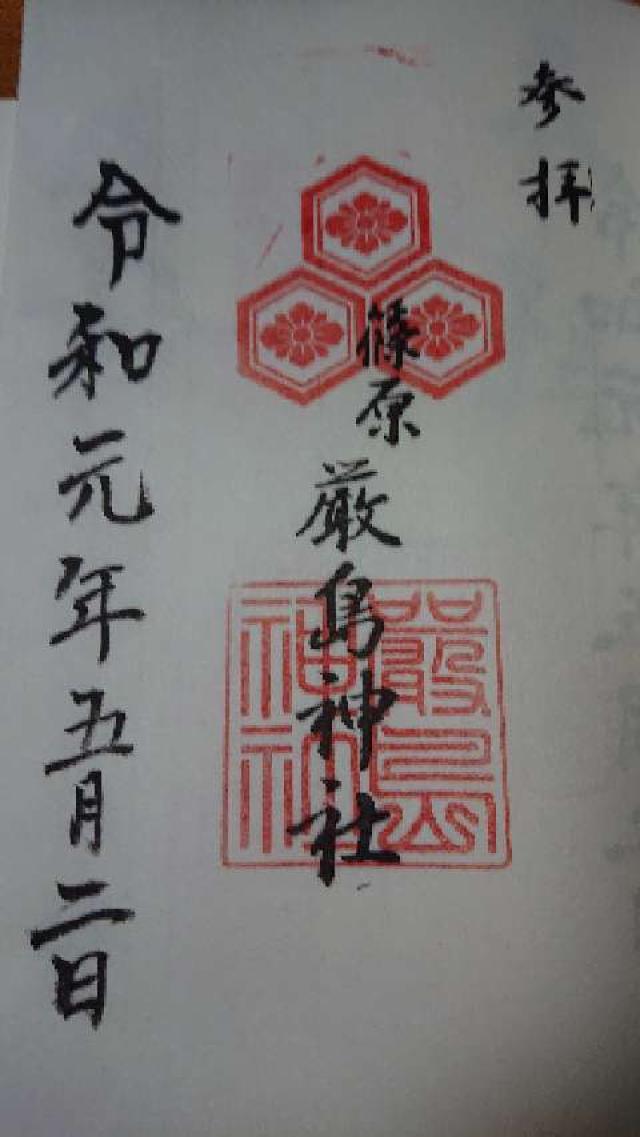 参拝
篠原
厳島神社
巖島
神社
令和元年五月二日